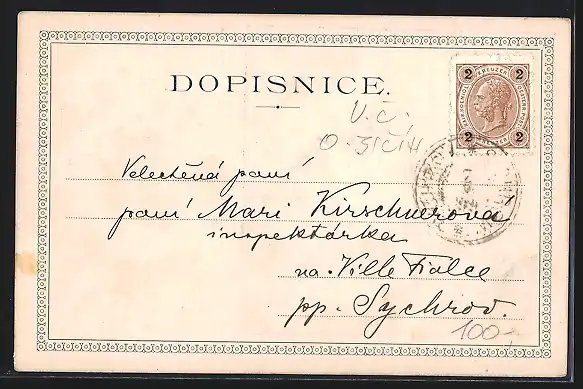 DOPISNICE.
2 KREUZER 2
2 2
V. Č.
Velectěná paní
paní Mari Kirschnerová
inspektórka
na Ville Fialce
pp. Sychrov.
100,-